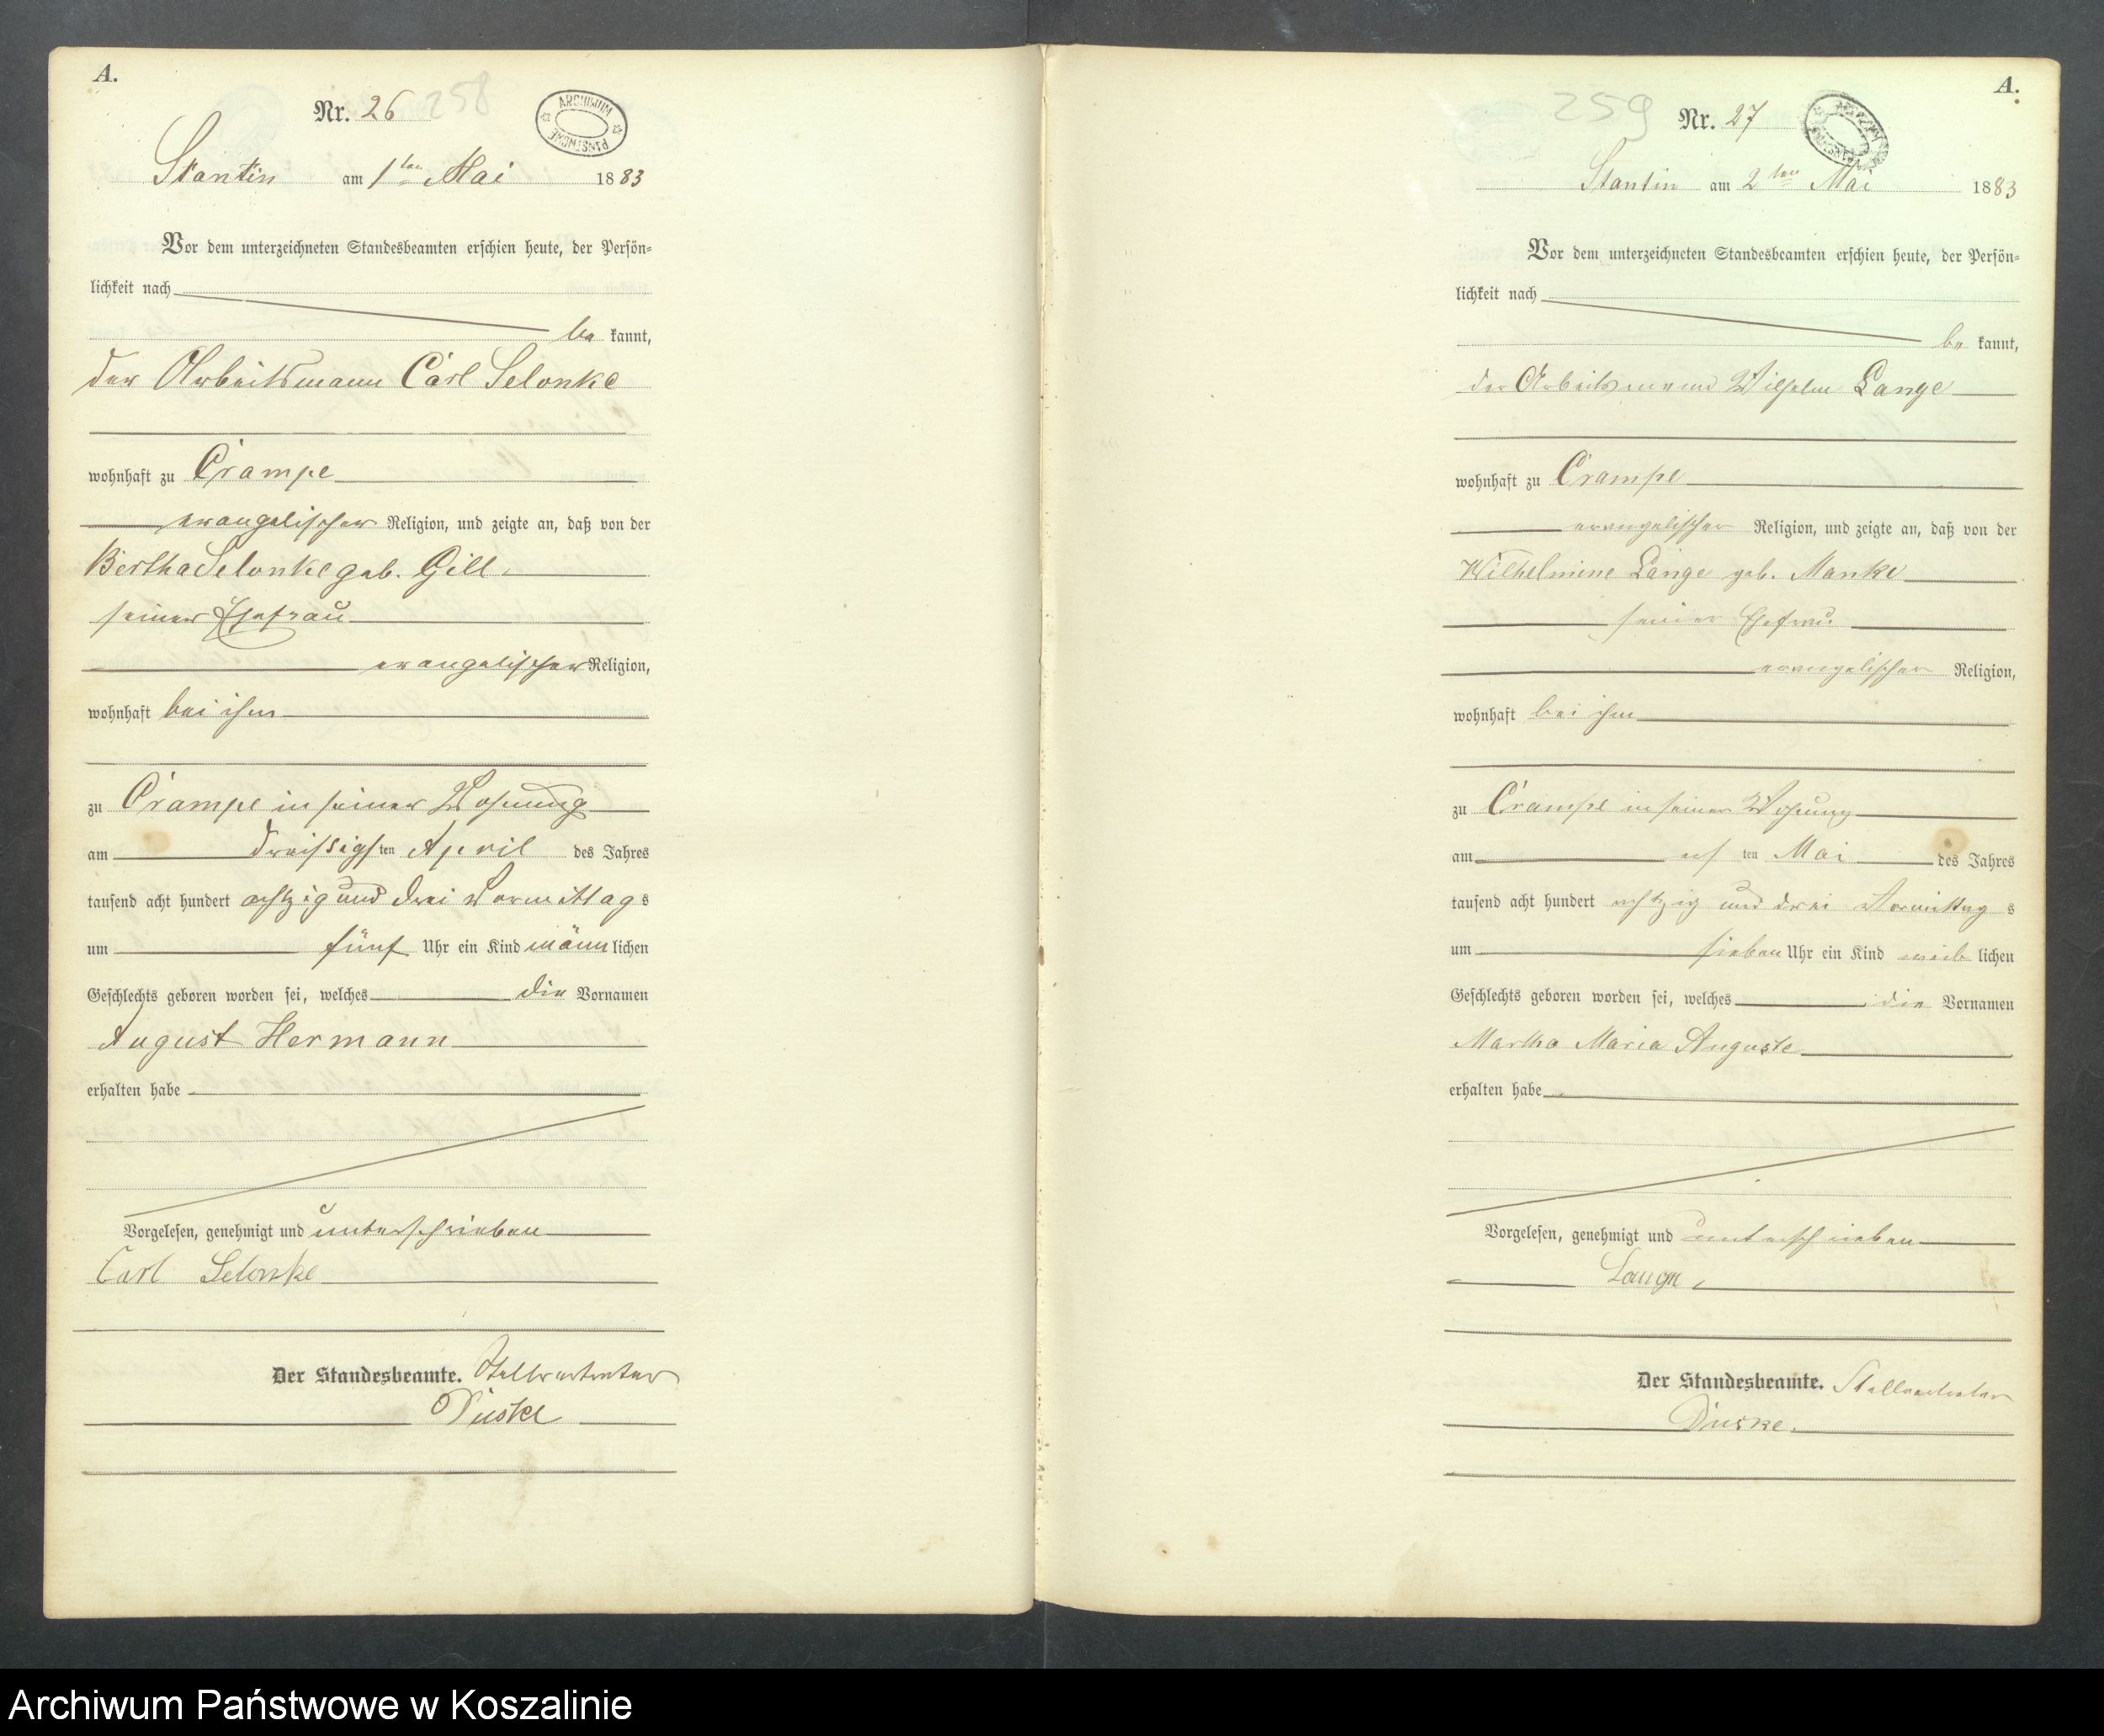 A.
Nr. 26 258
ARCHIWUM PAŃSTWOWE
Stantin am 1ten Mai 1883
Vor dem unterzeichneten Standesbeamten erschien heute, der Persön=
lichkeit nach
be kannt,
der Arbeitsmann Carl Selonke
wohnhaft zu Crampe
evangelischer Religion, und zeigte an, daß von der
Bertha Selonke geb. Gill
seiner Ehefrau
evangelischer Religion,
wohnhaft bei ihm
zu Crampe in seiner Wohnung
am dreißigsten April des Jahres
tausend acht hundert achtzig und drei Vormittags
um fünf Uhr ein Kind männlichen
Geschlechts geboren worden sei, welches die Vornamen
August Hermann
erhalten habe
Vorgelesen, genehmigt und unterschrieben
Carl Selonke
Der Standesbeamte. Stellvertreter
A.
259 Nr. 27
Stantin am 2ten Mai 1883
Vor dem unterzeichneten Standesbeamten erschien heute, der Persön=
lichkeit nach
be kannt,
der Arbeitsmann Wilhelm Lange
wohnhaft zu Crampe
evangelischer Religion, und zeigte an, daß von der
Wilhelmine Lange geb. Manke
seiner Ehefrau
evangelischer Religion,
wohnhaft bei ihm
zu Crampe in seiner Wohnung
am ten Mai des Jahres
tausend acht hundert achtzig und drei Vormittag s
um sieben Uhr ein Kind weib lichen
Geschlechts geboren worden sei, welches die Vornamen
Martha Maria Auguste
erhalten habe
Vorgelesen, genehmigt und unterschrieben
Lange
Der Standesbeamte. Stellvertreter
Archiwum Państwowe w Koszalinie